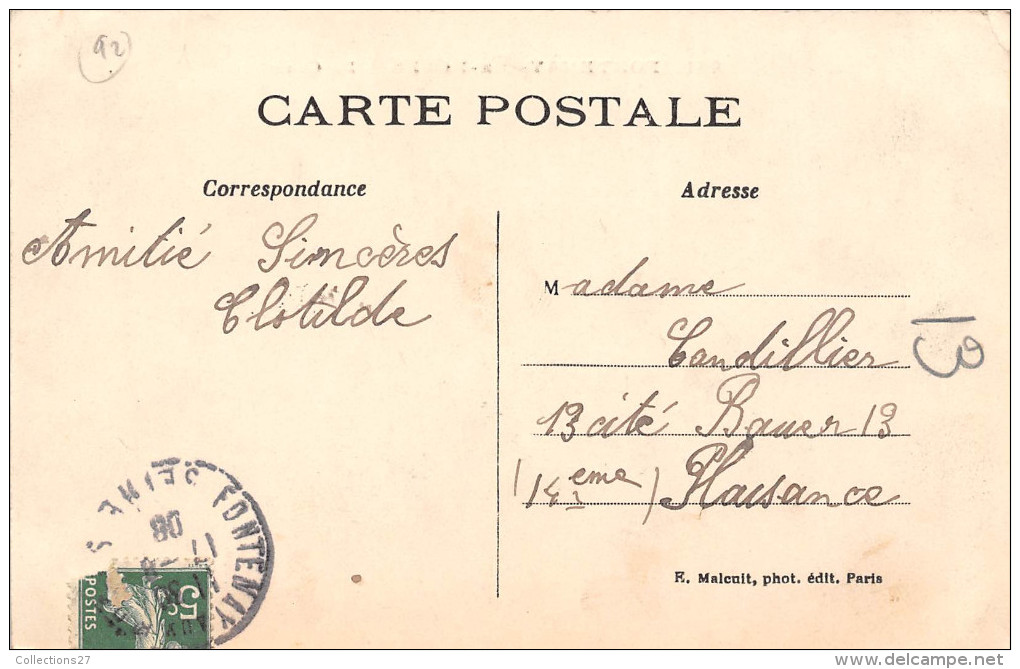 92
CARTE POSTALE
Correspondance
Amitié Sincères
Clotilde
Adresse
Madame
Candillier
13 cité Bauer 13
(14eme) Plaisance
13
FONTENAY AUX ROSES SEINE
17
08
5c
POSTES
E. Malcuit, phot. édit. Paris
Collections27
delcampe.net